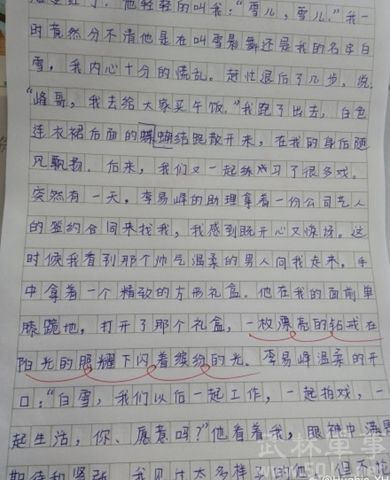 他轻轻的叫我:“雪儿,雪儿.”我一
时竟然分不清他是在叫雪舞还是我的名字白
雪,我内心十分的慌乱。赶忙退后了几步,说:
“峰哥,我去给大家买午饭。”我跑了出去,白色
连衣裙后面的蝴蝶结跑散开来,在我的身后随
风飘扬.后来,我们又一起练习了很多戏。
突然有一天,李易峰的助理拿着一份公司艺人
的签约合同来找我,我感到既开心又惊讶。这
时候我看到那个帅气温柔的男人向我走来,手
中拿着一个精致的方形礼盒。他在我的面前单
膝跪地,打开了那个礼盒,一枚漂亮的钻戒在
阳光的照耀下闪着缤纷的光。李易峰温柔的开
口:“白雪,我们以后一起工作,一起拍戏,一
起生活,你、愿意吗?”他看着我,眼神中满是
期待和紧张。我见过太多样子的他,但不
武林軍事